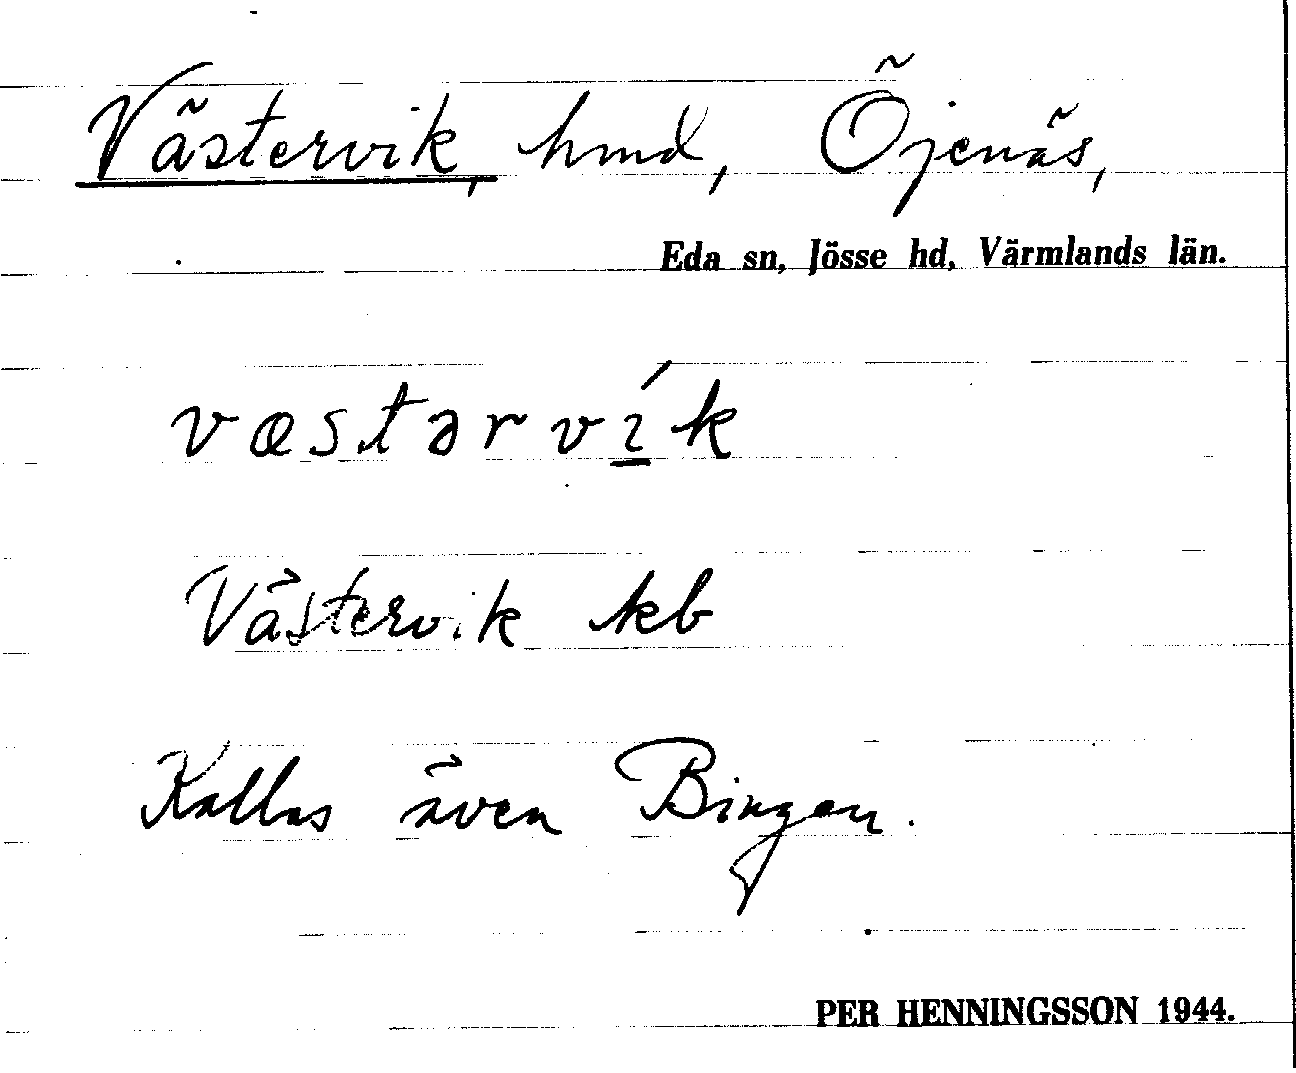 Västervik, hmd, Öjenäs,
Eda sn, Jösse hd, Värmlands län.
væstərvı̲́k
Västervik kb
Kallas även Bingen.
PER HENNINGSSON 1944.